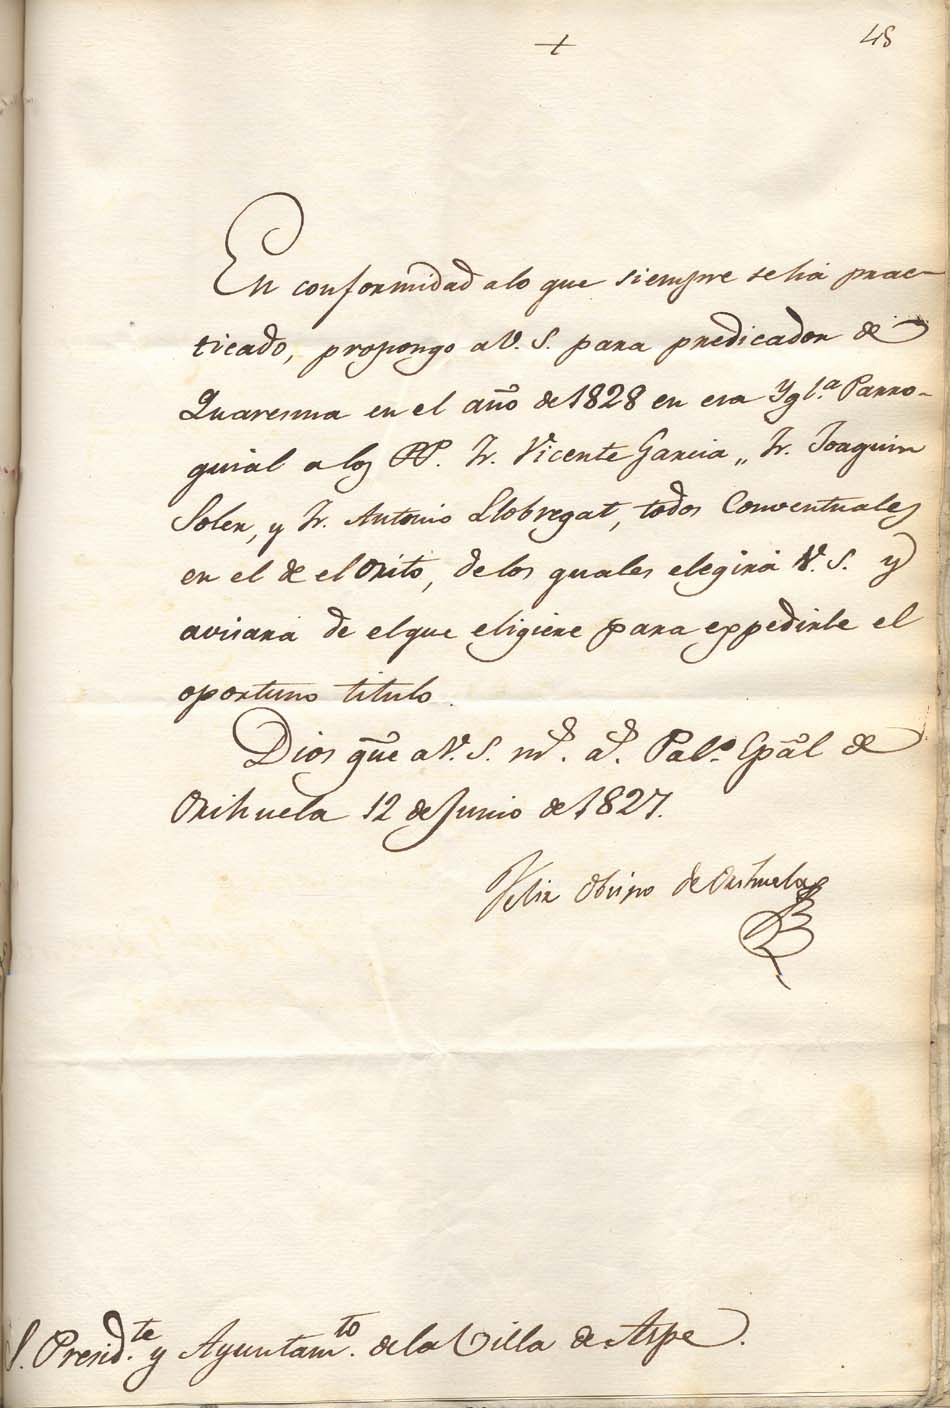 + 48
En conformidad alo que siempre se há prac-
ticado, propongo a V. S. para predicador de
Quaresma en el año de 1828 en esa Ygl.ª Parro-
quial a los PP. Fr. Vicente Garcia,, Fr. Joaquin
Soler, y Fr. Antonio Llobregat, todos Conventuales
en el de el Orito, de los quales elegirá V. S. y
avisará de el que eligiere para expedirle el
oportuno titulo.
Dios gũe a V. S. m.ˢ a.ˢ Pal.º Epãl de
Orihuela 12 de Junio de 1827.
Felix Obispo de Orihuela
S. Presid.te y Ayuntam.to de la Villa de Aspe.